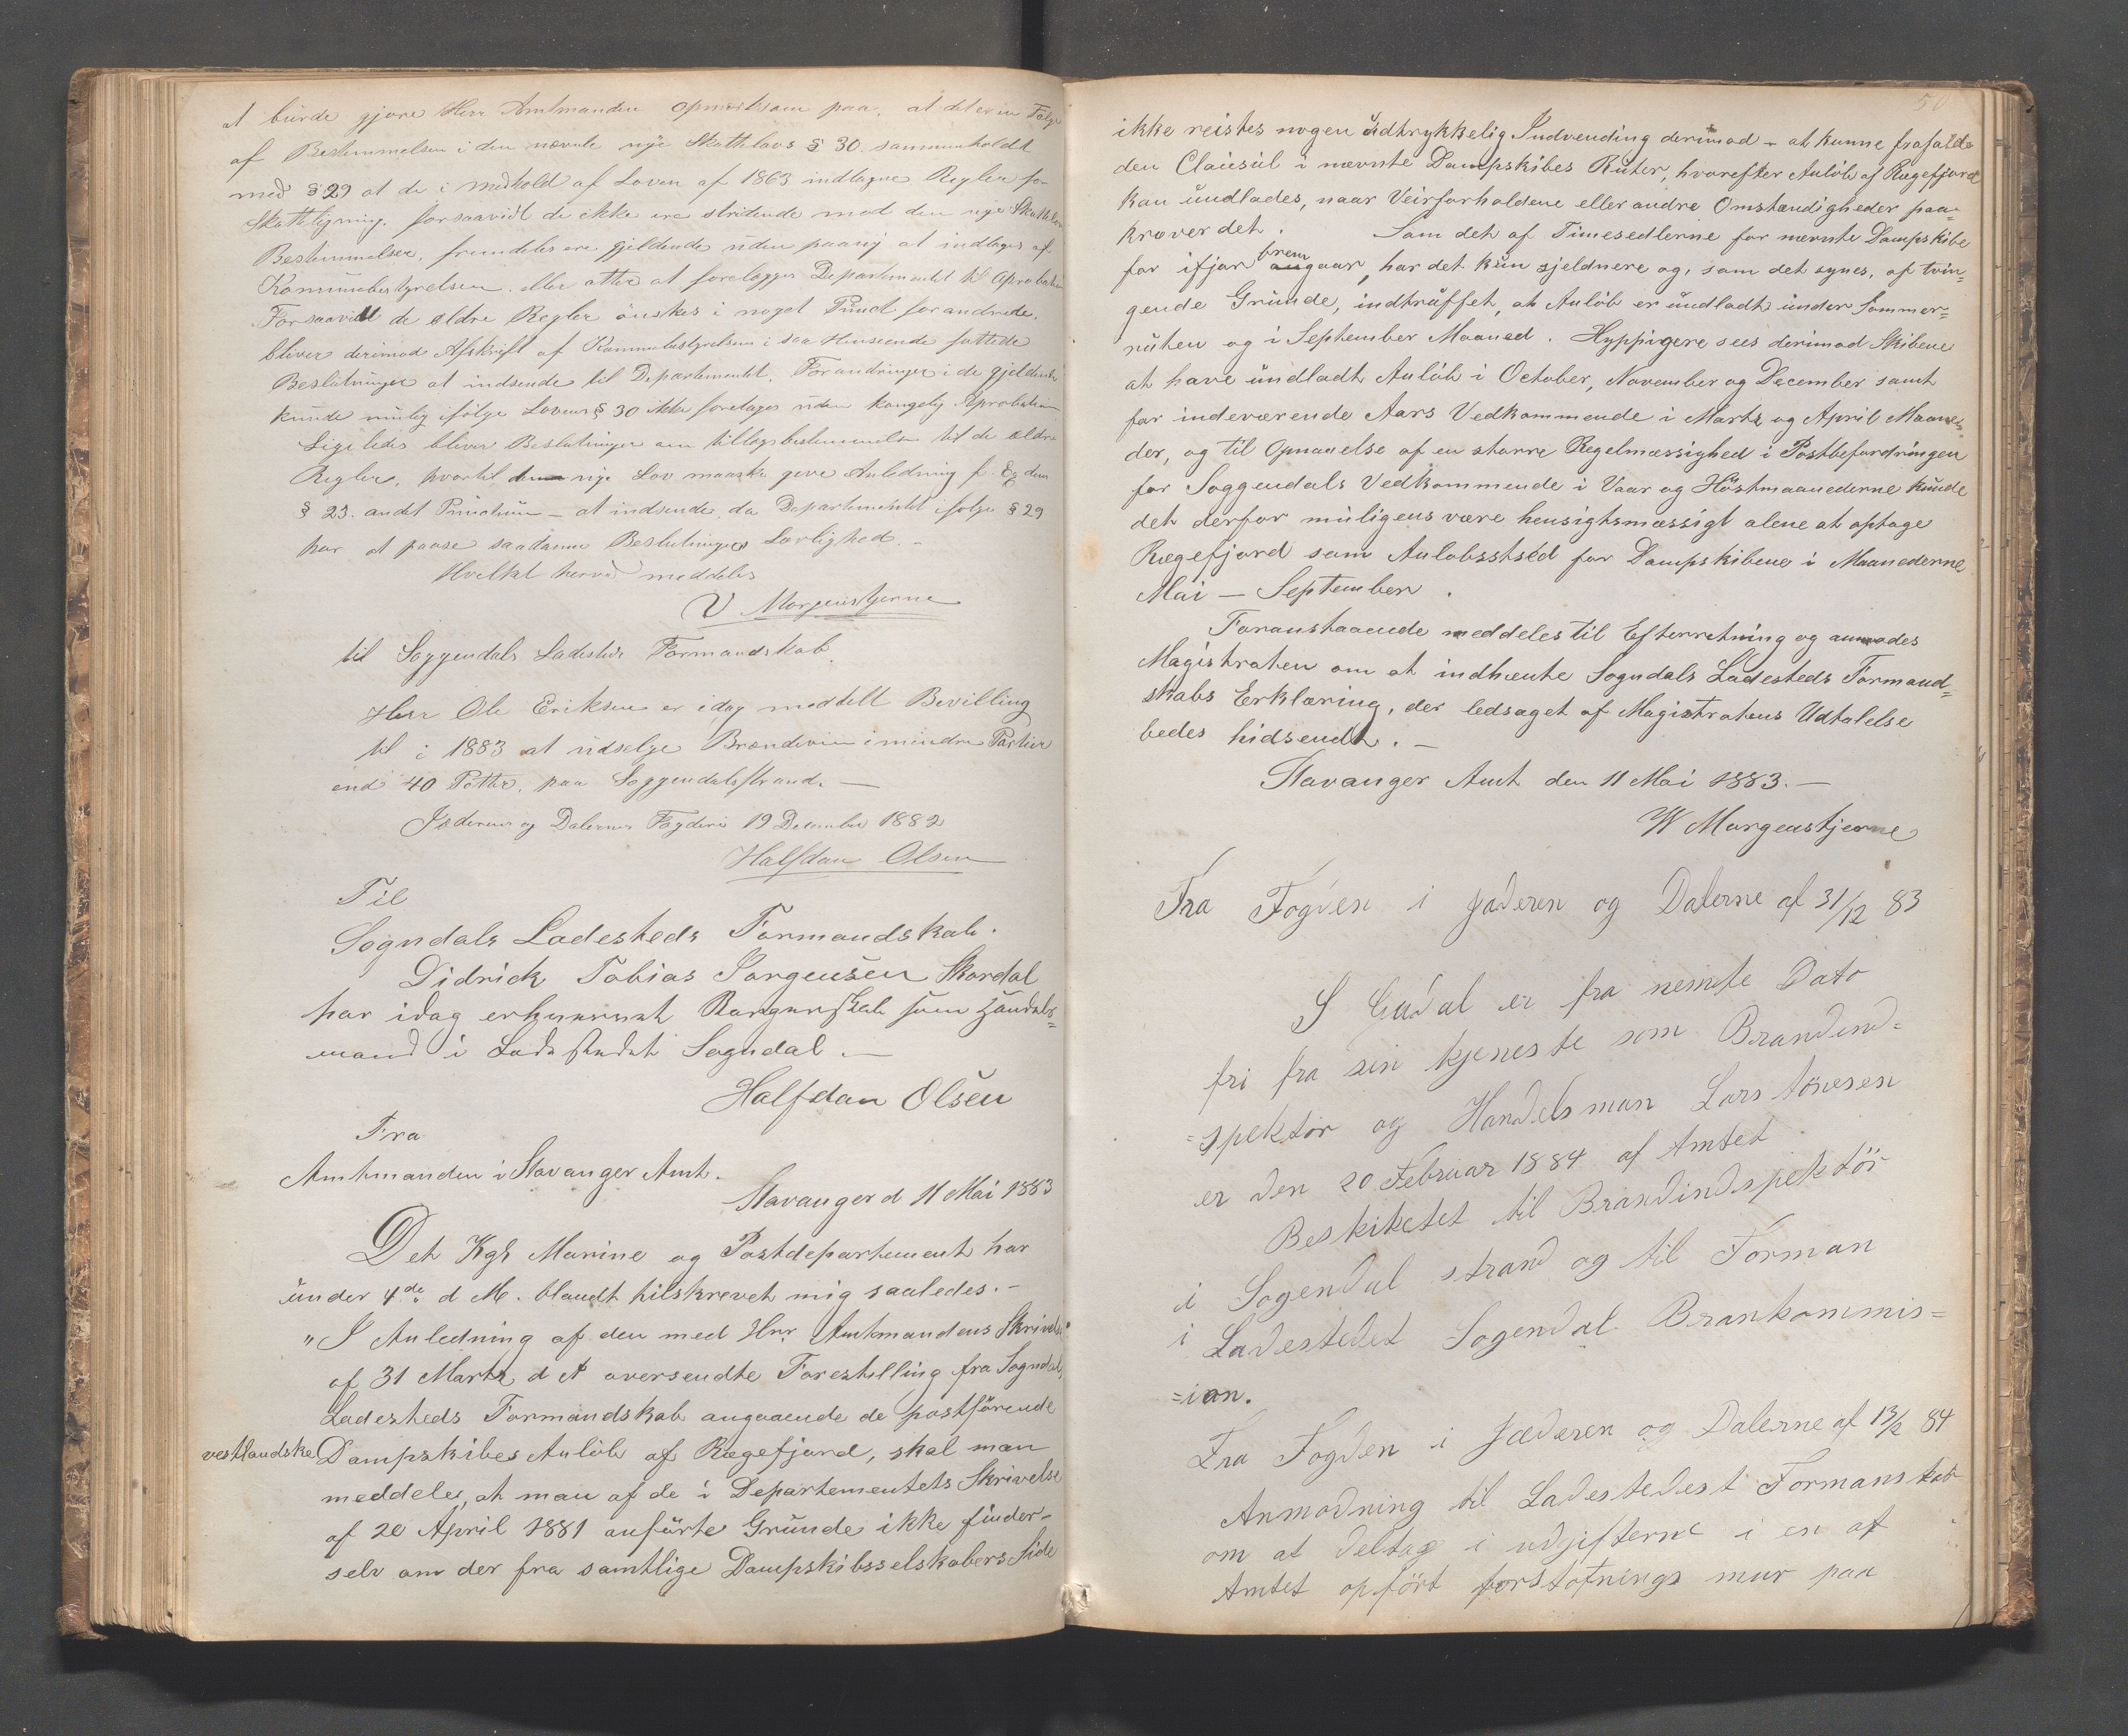 at burde gjøre Herr Amtmanden opmærksom paa, at det er en Følge
af Bestemmelsen i den nævnte nye Skattelovs § 30 sammenholdt
med § 29 at de i medhold af Loven af 1863 indtagne Regler for
Skatteligning, forsaavidt de ikke ere stridende mod den nye Skattelov
Bestemmelser, fremdeles ere gjeldende uden paany at indtages af
Kommunebestyrelsen, eller atter at forelægges Departementet til Aprobation
Forsaavidt de ældre Regler ønskes i noget Punct forandrede,
bliver derimod Afskrift af Kommunebestyrelsen i saa Henseende fattede
Beslutninger at indsende til Departementet. Forandringer i de gjeldende
kunde nemlig ifølge Lovens § 30 ikke foretages uden kongelig Aprobation
Ligeledes bliver Beslutninger om tillægsbestemmelser til de ældre
Regler, hvortil den nye Lov maaske give Anledning f. Ex dens
§ 23. andet Punctum – at indsende, da Departementet ifølge § 29
har at paase saadanne Beslutningers Lovlighed. –
Hvilket herved meddeles
V Morgenstjerne
til Soggendals Ladesteds Formandskab
Herr Ole Eriksen er idag meddelt Bevilling
til i 1883 at udselge Brændevin i mindre Partier
end 40 Potter, paa Soggendalsstrand. —
Jæderens og Dalernes Fogderi 19 December 1882
Halfdan Olsen
Til
Sogndals Ladesteds Formandskab.
Didrick Tobias Jørgensen Skordal
har idag erhvervet Borgerskab som Handels=
mand i Ladestedet Sogndal. —
Halfdan Olsen
Fra
Amtmanden i Stavanger Amt.
Stavanger d 11 Mai 1883
Det Kgl Marine og Postdepartement har
under 4de d M. blandt tilskrevet mig saaledes. –
"I Anledning af den med Hrr Amtmandens Skrivelse
af 31 Marts d A oversendte Forestilling fra Sogndals
Ladesteds Formandskab angaaende de postförende
vestlandske Dampskibes Anlöb af Rægefjord, skal man
meddele, at man af de i Departementets Skrivelse
af 20 April 1881 anförte Grunde ikke finder –
selv om der fra samtlige Dampskibsselskabers Side
50
ikke reistes nogen udtrykkelig Indvending derimod – at kunne frafalde
den Clausul i nævnte Dampskibes Ruter, hvorefter Anlöb af Rægefjord
kan undlades, naar Veirforholdene eller andre Omstændigheder paa=
kræver det. Som det af Timesedlerne for nævnte Dampskibe
for ifjor fremgaar, har det kun sjeldnere og, som det synes, af tvin=
gende Grunde, indtruffet, at Anlöb er undladt under Sommer=
ruten og i September Maaned. Hyppigere sees derimod Skibene
at have undladt Anlöb i October, November og December samt
for indeværende Aars Vedkommende i Marts og April Maane=
der, og til Opnaaelse af en større Regelmæssighed i Postbefordringen
for Soggendals Vedkommende i Vaar og Höstmaanederne kunde
det derfor muligens være hensigtsmæssigt alene at optage
Rægefjord som Anløbssted for Dampskibene i Maanederne
Mai — September.
Foranstaaende meddeles til Efterretning og anmodes
Magistraten om at indhente Sogndals Ladesteds Formand=
skabs Erklæring, der ledsaget af Magistratens Udtalelse
bedes hidsendt. –
Stavanger Amt den 11 Mai 1883. –
W Morgenstjerne
Fra Fogden i Jæderen og Dalerne af 31/12 83
S Eudal er fra nemte Dato
fri fra sin tjeneste som Brandind=
=spektør og Handelsman Lars Tönesen
er den 20 Februar 1884 af Amtet
Beskiketet til Brandindspektör
i Sogendal strand og til Forman
i Ladestedet Sogendal Brankommis=
=ion.
Fra Fogden i Jæderen og Dalerne af 13/2 84
Anmodning til Ladestedest Formanskab
om at deltage i udgifterne i en af
Amtet opfört forstötnings mur paa